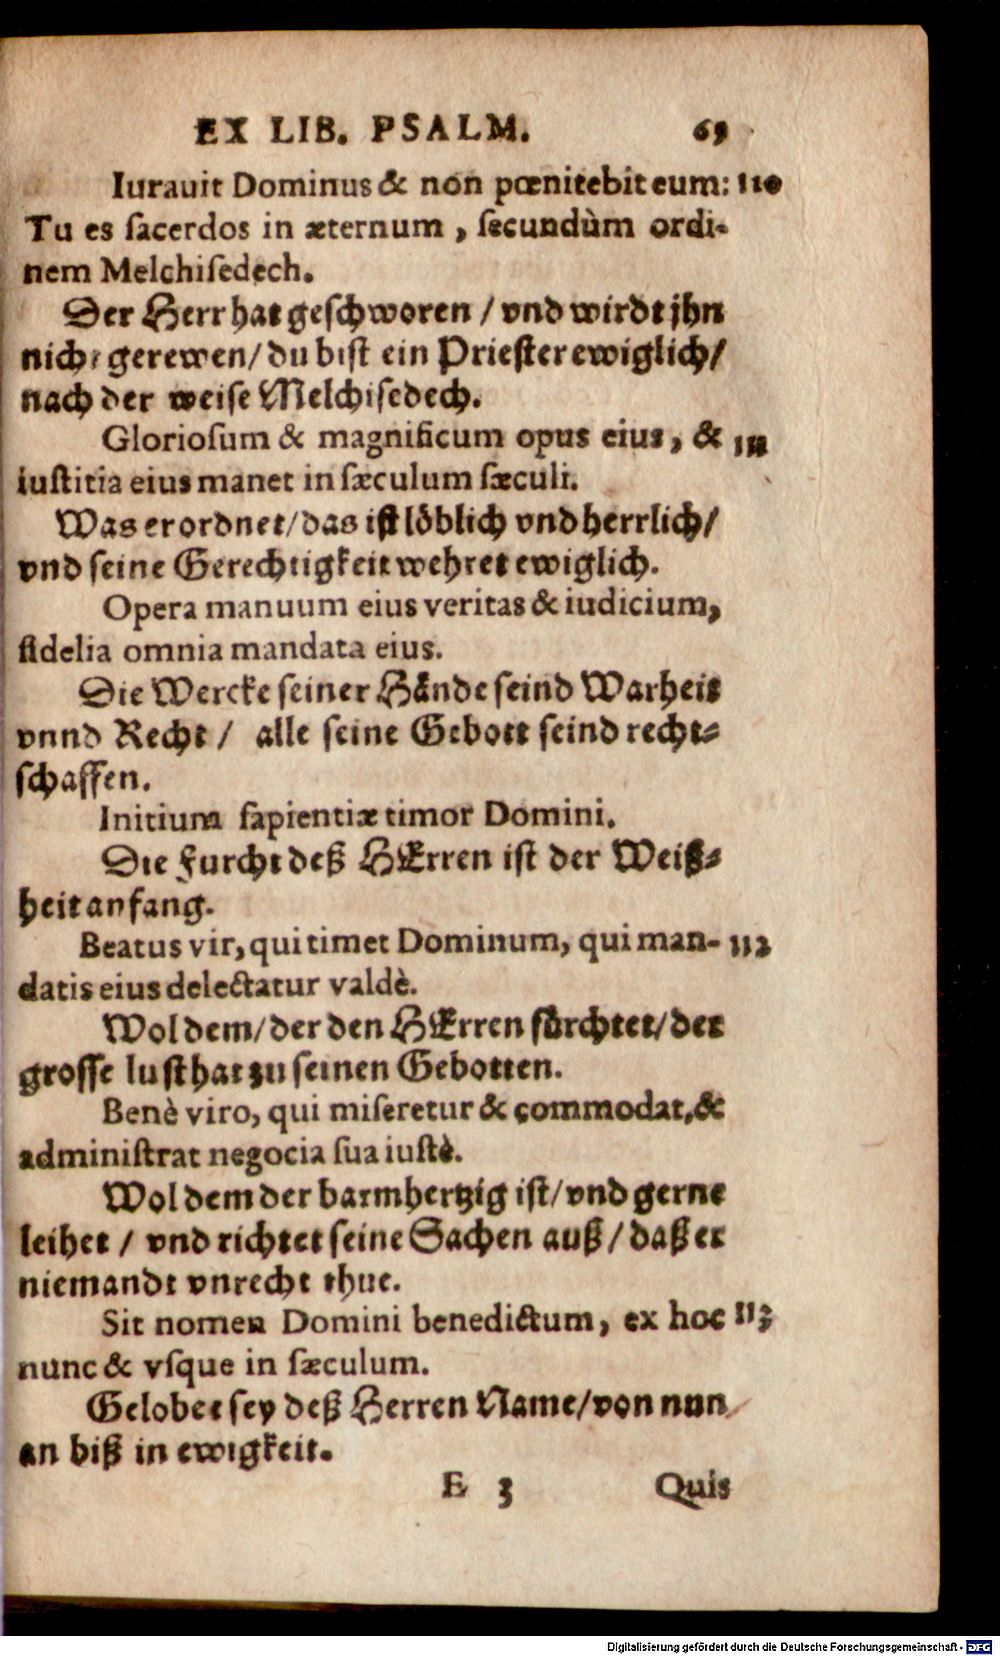 EX LIB. PSALM. 69
Iurauit Dominus & non pœnitebit eum: 110
Tu es ſacerdos in æternum, ſecundùm ordi-
nem Melchiſedech.
Der Herr hat geſchworen / vnd wirdt jhn
nicht gerewen / du biſt ein Prieſter ewiglich /
nach der weiſe Melchiſedech.
Glorioſum & magnificum opus eius, & 111
iuſtitia eius manet in ſæculum ſæculi.
Was er ordnet / das iſt löblich vnd herrlich /
vnd ſeine Gerechtigkeit wehret ewiglich.
Opera manuum eius veritas & iudicium,
fidelia omnia mandata eius.
Die Wercke ſeiner Hände ſeind Warheit
vnnd Recht / alle ſeine Gebott ſeind recht-
ſchaffen.
Initium ſapientiæ timor Domini.
Die Furcht deß HErren iſt der Weiß-
heit anfang.
Beatus vir, qui timet Dominum, qui man- 112
datis eius delectatur valdè.
Wol dem / der den HErren förchtet / der
groſſe luſt hat zu ſeinen Gebotten.
Benè viro, qui miſeretur & commodat, &
adminiſtrat negocia ſua iuſtè.
Wol dem der barmhertzig iſt / vnd gerne
leihet / vnd richtet ſeine Sachen auß / daß er
niemandt vnrecht thue.
Sit nomen Domini benedictum, ex hoc 113
nunc & vſque in ſæculum.
Gelobet ſey deß Herren Name / von nun
an biß in ewigkeit.
E 3 Quis
Digitalisierung gefördert durch die Deutsche Forschungsgemeinschaft - DFG